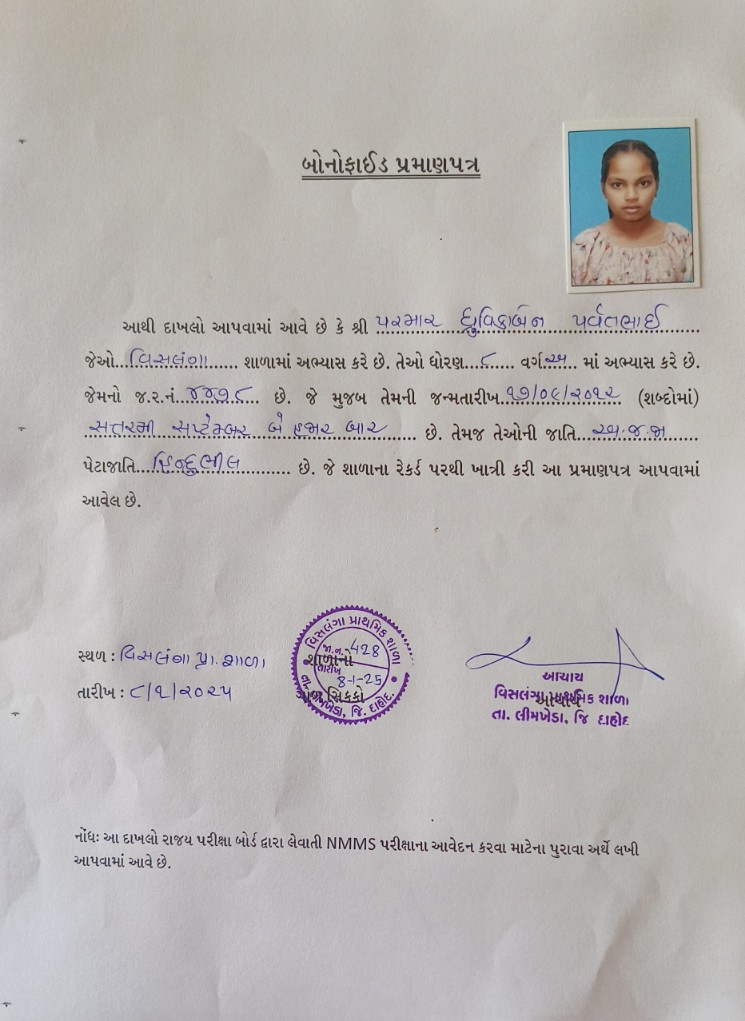 બોનોફાઈડ પ્રમાણપત્ર
આથી દાખલો આપવામાં આવે છે કે શ્રી પરમાર ધ્રુવિકાબેન પર્વતભાઈ
જેઓ...વિસલંગા...... શાળામાં અભ્યાસ કરે છે. તેઓ ધોરણ...૮.... વર્ગ..અ... માં અભ્યાસ કરે છે.
જેમનો જ.ર.નં...૪૪૭૮.... છે. જે મુજબ તેમની જન્મતારીખ..૧૭/૦૯/૨૦૧૨ (શબ્દોમાં)
સત્તરમી સપ્ટેમ્બર બે હજાર બાર .... છે. તેમજ તેઓની જાતિ...અ.જ.જા....
પેટાજાતિ...હિન્દુભીલ.......... છે. જે શાળાના રેકર્ડ પરથી ખાત્રી કરી આ પ્રમાણપત્ર આપવામાં
આવેલ છે.
સ્થળ : વિસલંગા પ્રા. શાળા
તારીખ : ૮/૧/૨૦૨૫
વિસલંગા પ્રાથમિક શાળા
જા.ન. 428
શાળાનો
તારીખ 8-1-25
ગોળ સિક્કો
તા. લીમખેડા, જિ. દાહોદ.
આચાર્ય
વિસલંગા પ્રાથમિક શાળા
આચાર્ય
તા. લીમખેડા, જિ દાહોદ
નોંધ: આ દાખલો રાજય પરીક્ષા બોર્ડ દ્વારા લેવાતી NMMS પરીક્ષાના આવેદન કરવા માટેના પુરાવા અર્થે લખી
આપવામાં આવે છે.